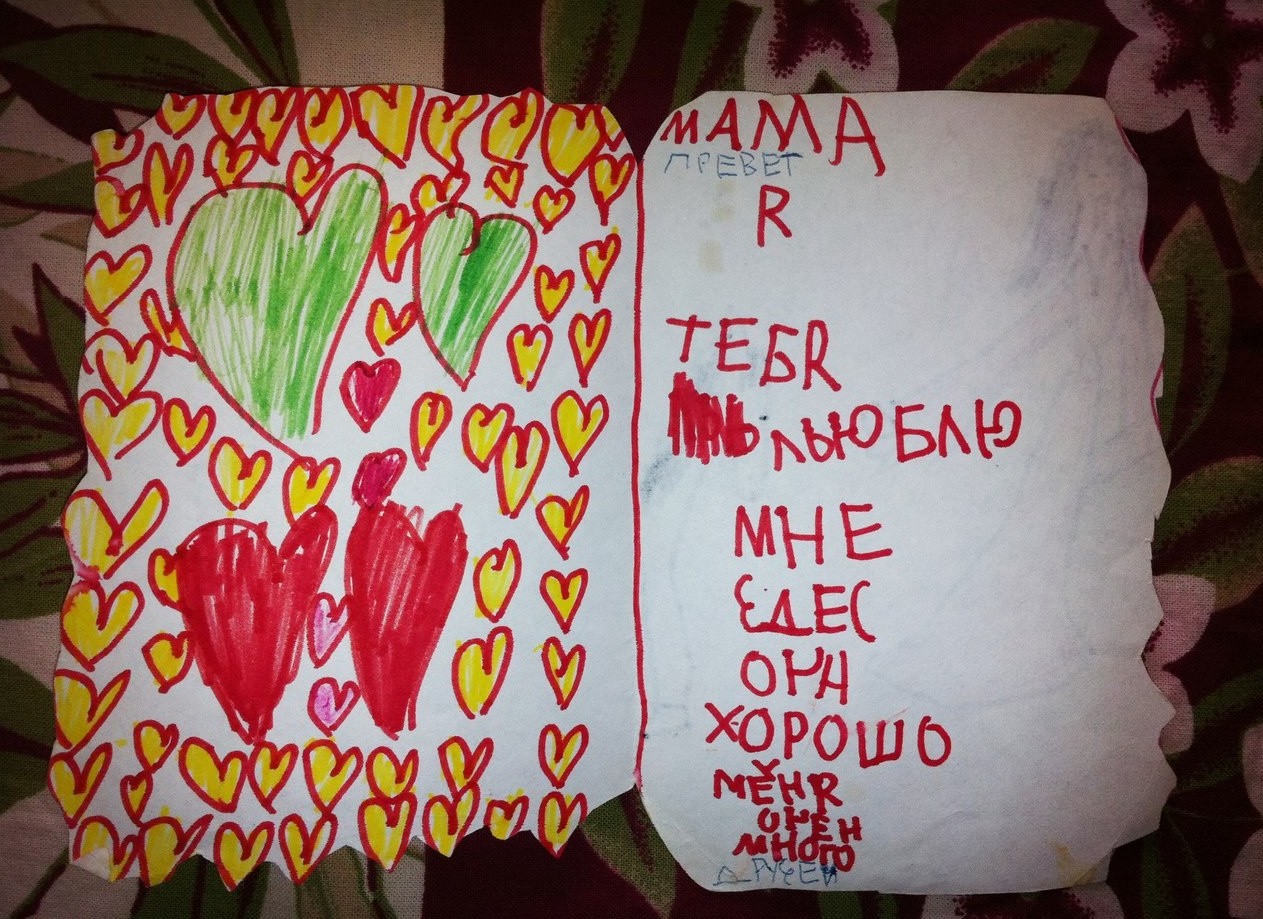 МАМА
ПРЕВЕТ
Я
ТЕБЯ
ЛЬЮБЛЮ
МНЕ
ЗДЕС
ОЧН
ХОРОШО
МЕНЯ
ОЧЕН
МНОГО
ДРУЗЕЙ